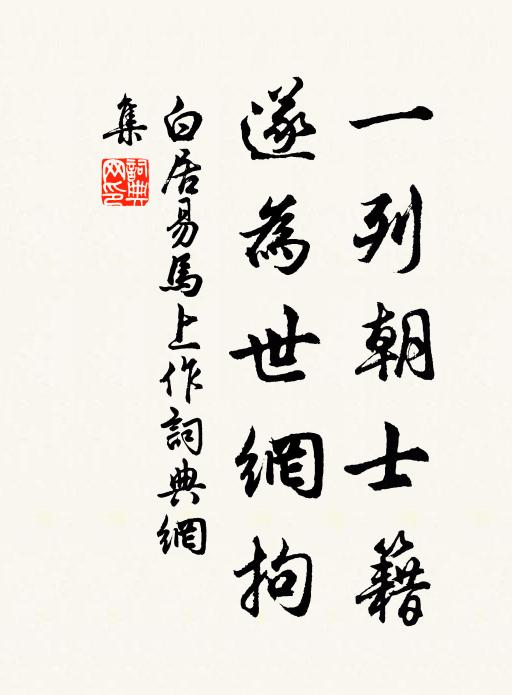 一列朝士籍
遂為世網拘
白居易馬上作詞典網
集
詞典
网印